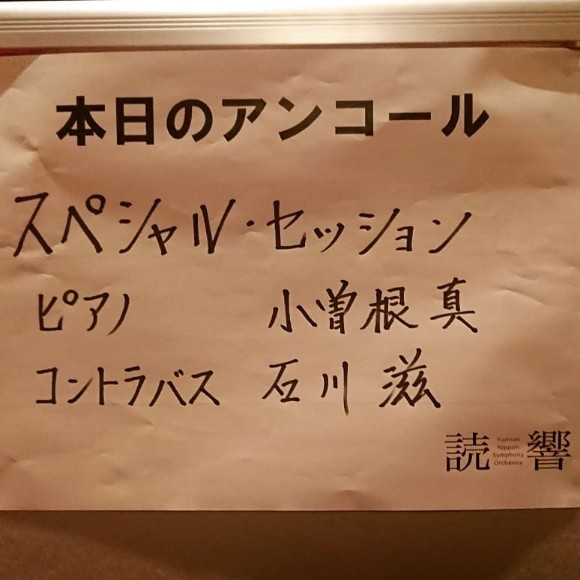 本日のアンコール
スペシャル・セッション
ピアノ 小曽根 真
コントラバス 石川 滋
読響
Yomiuri
Nippon
Symphony
Orchestra